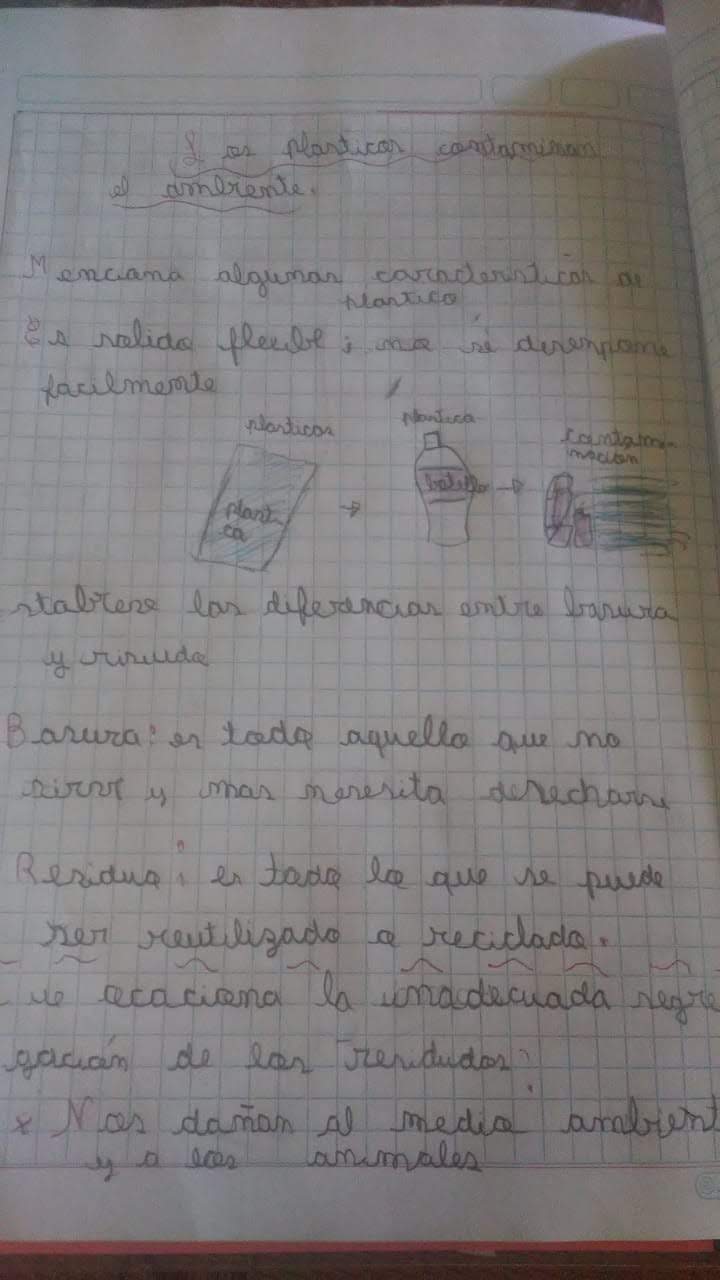 Los plasticos contaminan
el ambiente.
Menciona algunas caracteristicas de
plastico
Es solido flexible ; no se desenpone
facilmente
plasticos
plastico
contami-
nacion
plasti
co
botella
stablese las diferencias entre basura
y
Basura: es todo aquello que no
sirve y mas nesesita desecharse
Residuo: es todo lo que se puede
ser reutilizado o reciclado.
ue ocaciona la inadecuada segre
gación de los residudos:
* Nos dañan al medio ambient
y a los animales